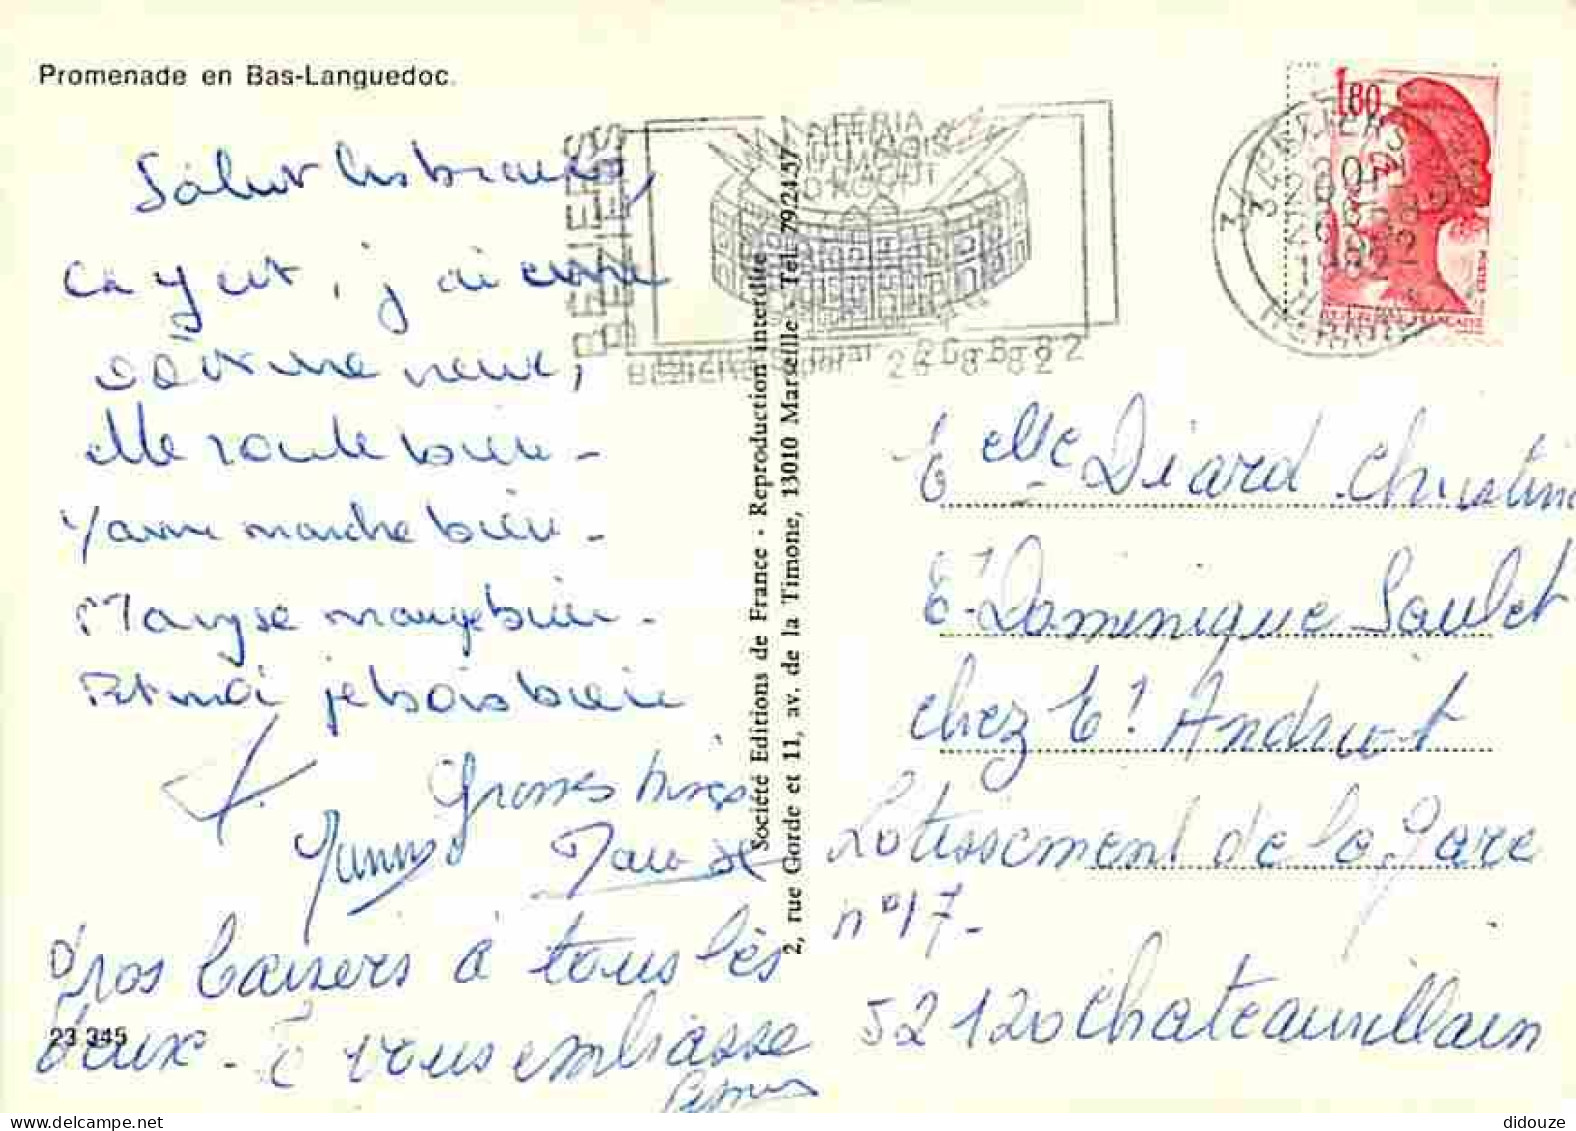 Promenade en Bas-Languedoc.
Salut les braves,
Ca y est, j'ai
voiture neuve,
elle roule bien -
Yanne marche bien -
Maryse mange bien -
Et moi je bois bien
Grosses bises
Gros baisers à tous les
deux. vous embrasse
23 345
Société Editions de France - Reproduction interdite
2, rue Gorde et 11, av. de la Timone, 13010 Marseille - Tél. 79.24.57
BEZIERS
BEZIERS
FÉRIA
DU MOIS
D'AOÛT
26-8-82
26-8-82
1,80
elle Diard Christine
Dominique Saulet
chez Andriot
Lotissement de la gare
n° 17 -
52120 Chateauvillain
didouze